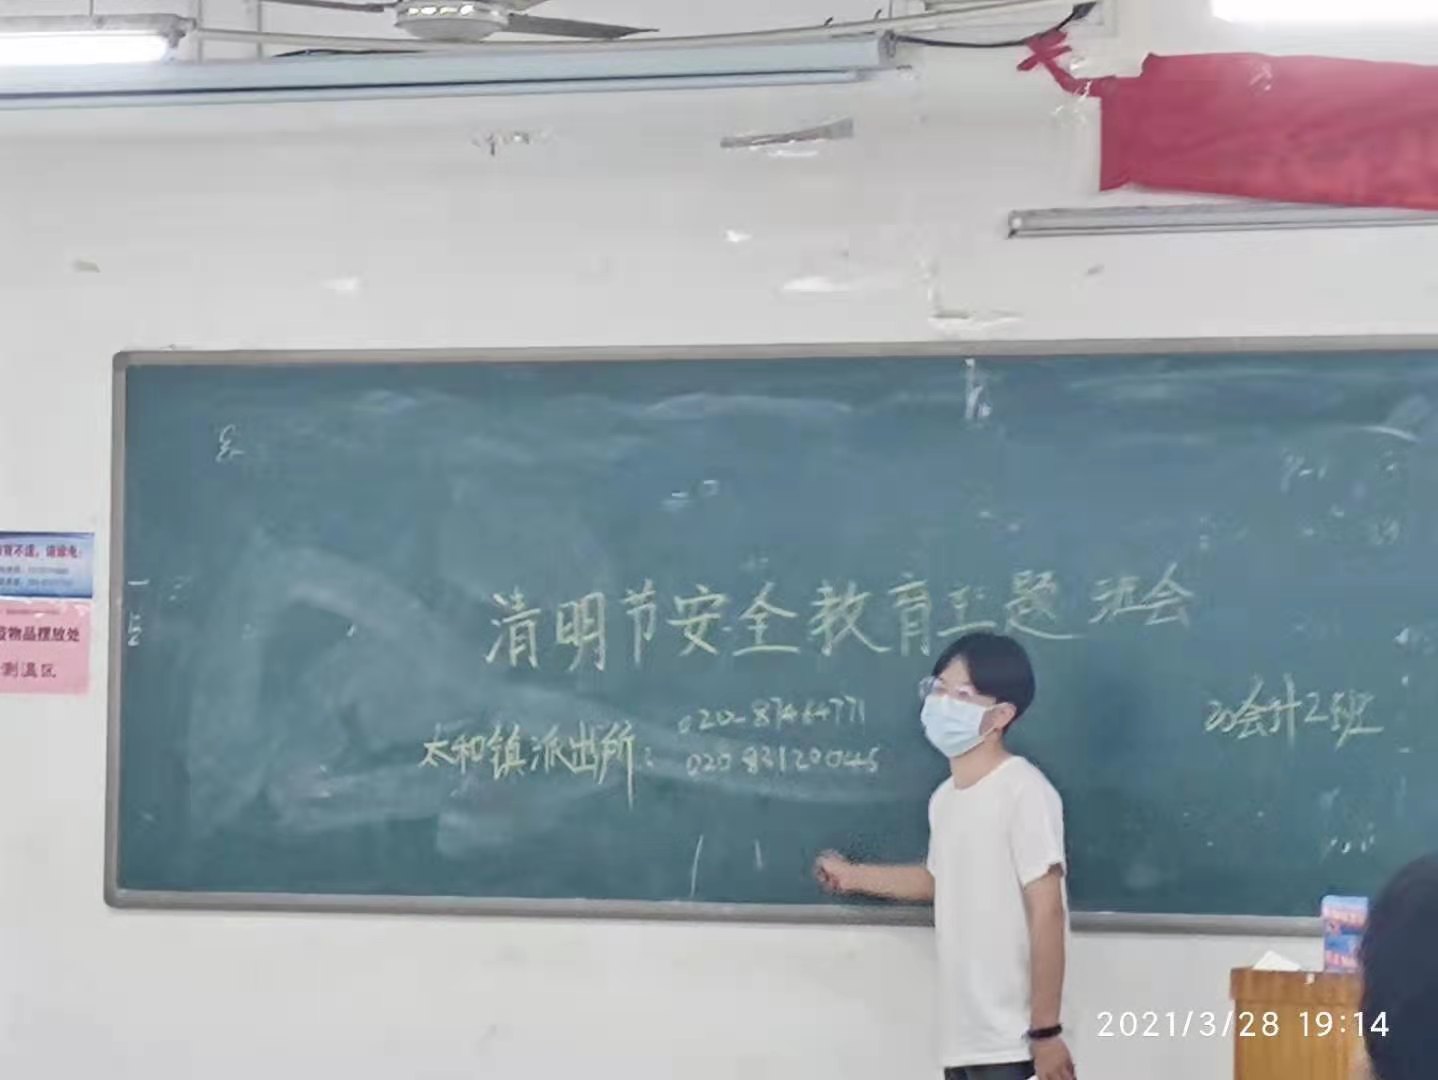 清明节安全教育主题班会
太和镇派出所:
020-87464771
020 83120045
会计2班
物品摆放处
测温区
2021/3/28 19:14